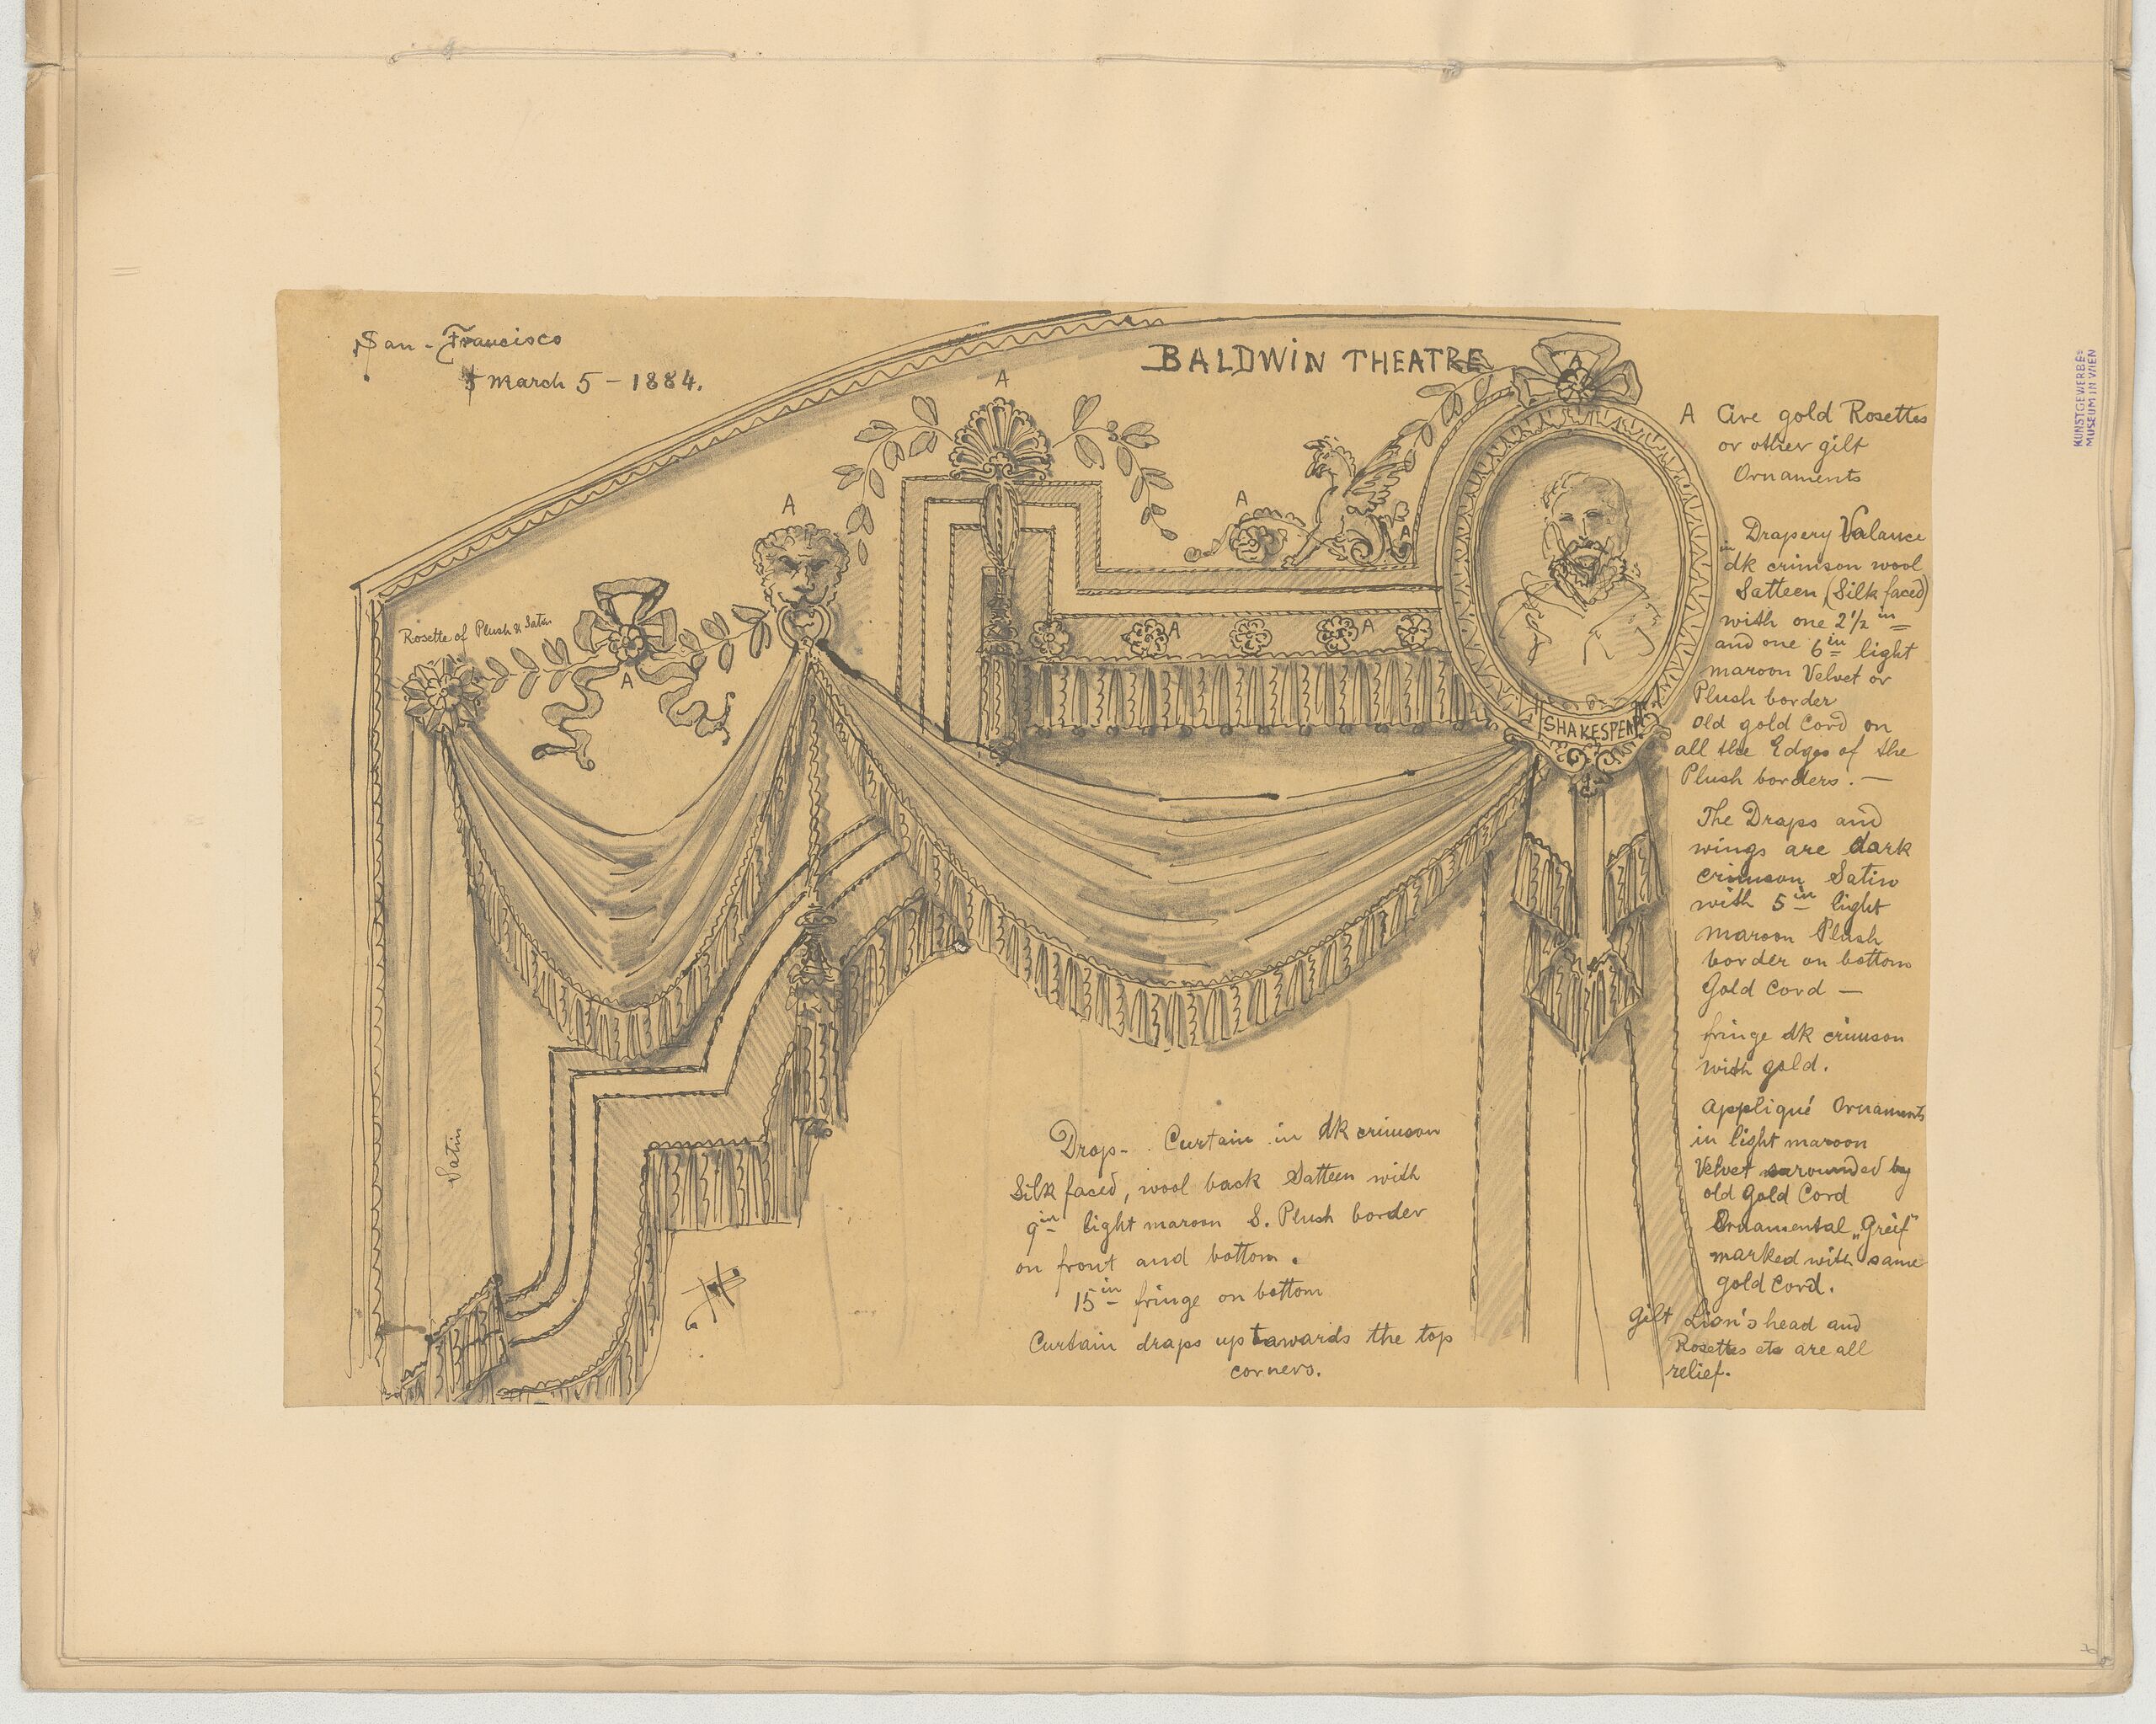 San-Francisco
March 5 - 1884.
BALDWIN THEATRE
A
A
A
A
A
A
A
A
A
Rosette of Plush & Satin
SHAKESPEAR
Satin
A Are gold Rosettes
or other gilt
Ornaments
Drapery Valance
in
dk crimson wool
Satteen (Silk faced)
with one 2 1/2 in
and one 6 in light
maroon Velvet or
Plush border
old gold Cord on
all the Edges of the
Plush borders. —
The Draps and
wings are dark
crimson Satin
with 5 in light
maroon Plush
border on bottom
Gold Cord —
fringe dk crimson
with gold.
Appliqué Ornaments
in light maroon
Velvet surounded by
old Gold Cord
Ornamental „Greif"
marked with same
gold Cord.
Gilt Lion's head and
Rosettes etc are all
relief.
Drop- Curtain in dk crimson
Silk faced, wool back Satteen with
9 in light maroon S. Plush border
on front and bottom.
15 in fringe on bottom
Curtain draps up tawards the top
corners.
KUNSTGEWERBE-
MUSEUM IN WIEN